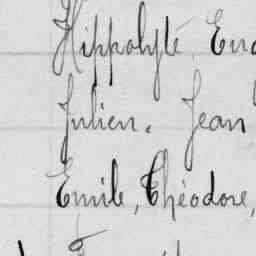 Hippolyte
Julien, Jean
Emile, Théodore,